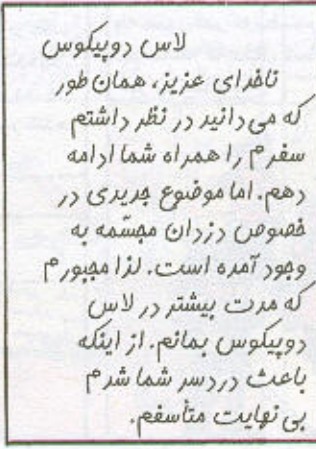 لاس دوپیکوس
ناخدای عزیز، همان طور
که می دانید در نظر داشتم
سفرم را همراه شما ادامه
دهم. اما موضوع جدیدی در
خصوص دزدان مجسّمه به
وجود آمده است. لذا مجبورم
که مدت بیشتر در لاس
دوپیکوس بمانم. از اینکه
باعث دردسر شما شدم
بی نهایت متأسفم.